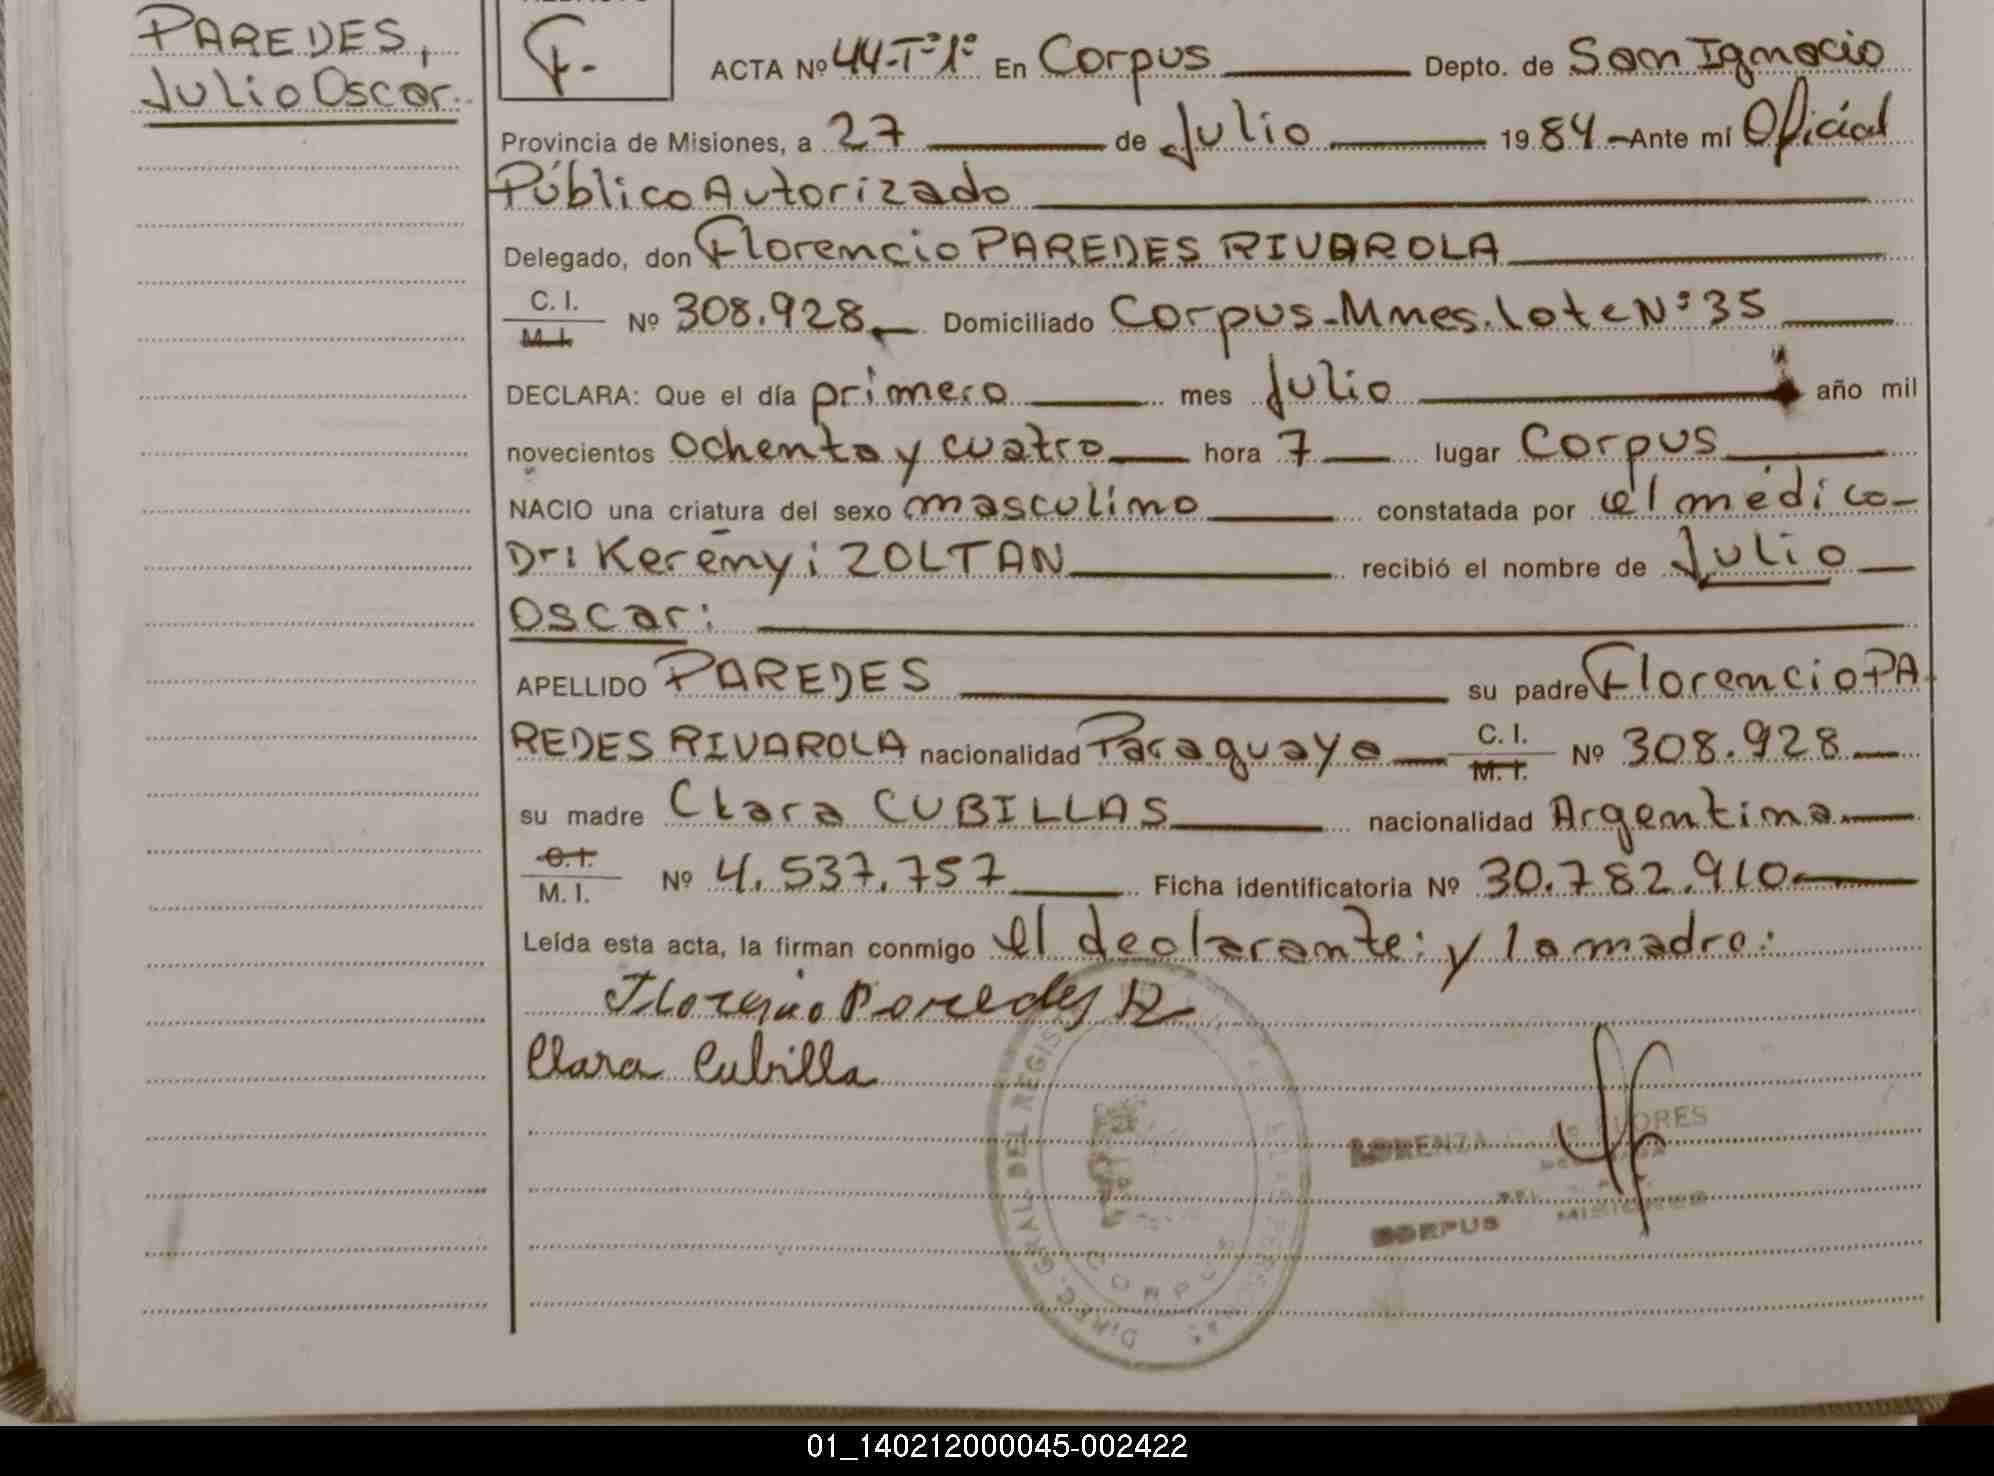 PAREDES,
Julio Oscar.
F.-
ACTA Nº 44-Tº1º En Corpus Depto. de San Ignacio
Provincia de Misiones, a 27 de Julio 1984.- Ante mí Oficial
Público Autorizado
Delegado, don Florencio PAREDES RIVAROLA
C. I.
M. I. Nº 308.928 Domiciliado Corpus-Mnes. lote Nº 35
DECLARA: Que el día primero mes Julio año mil
novecientos ochenta y cuatro hora 7 lugar Corpus
NACIO una criatura del sexo masculino constatada por el médico-
Dr: Kerényi ZOLTAN recibió el nombre de Julio
Oscar:
APELLIDO PAREDES su padre Florencio PA
REDES RIVAROLA nacionalidad Paraguaya C. I. Nº 308.928
M. I.
su madre Clara CUBILLAS nacionalidad Argentina
C. I.
M. I. Nº 4.537.757 Ficha identificatoria Nº 30.782.910
Leída esta acta, la firman conmigo el declarante: y la madre:
Florencio Paredes R
Clara Cubilla
DIREC. GRAL. DEL REGIS
CORPUS
LORENZA FLORES
CORPUS MISIONES
01_140212000045-002422